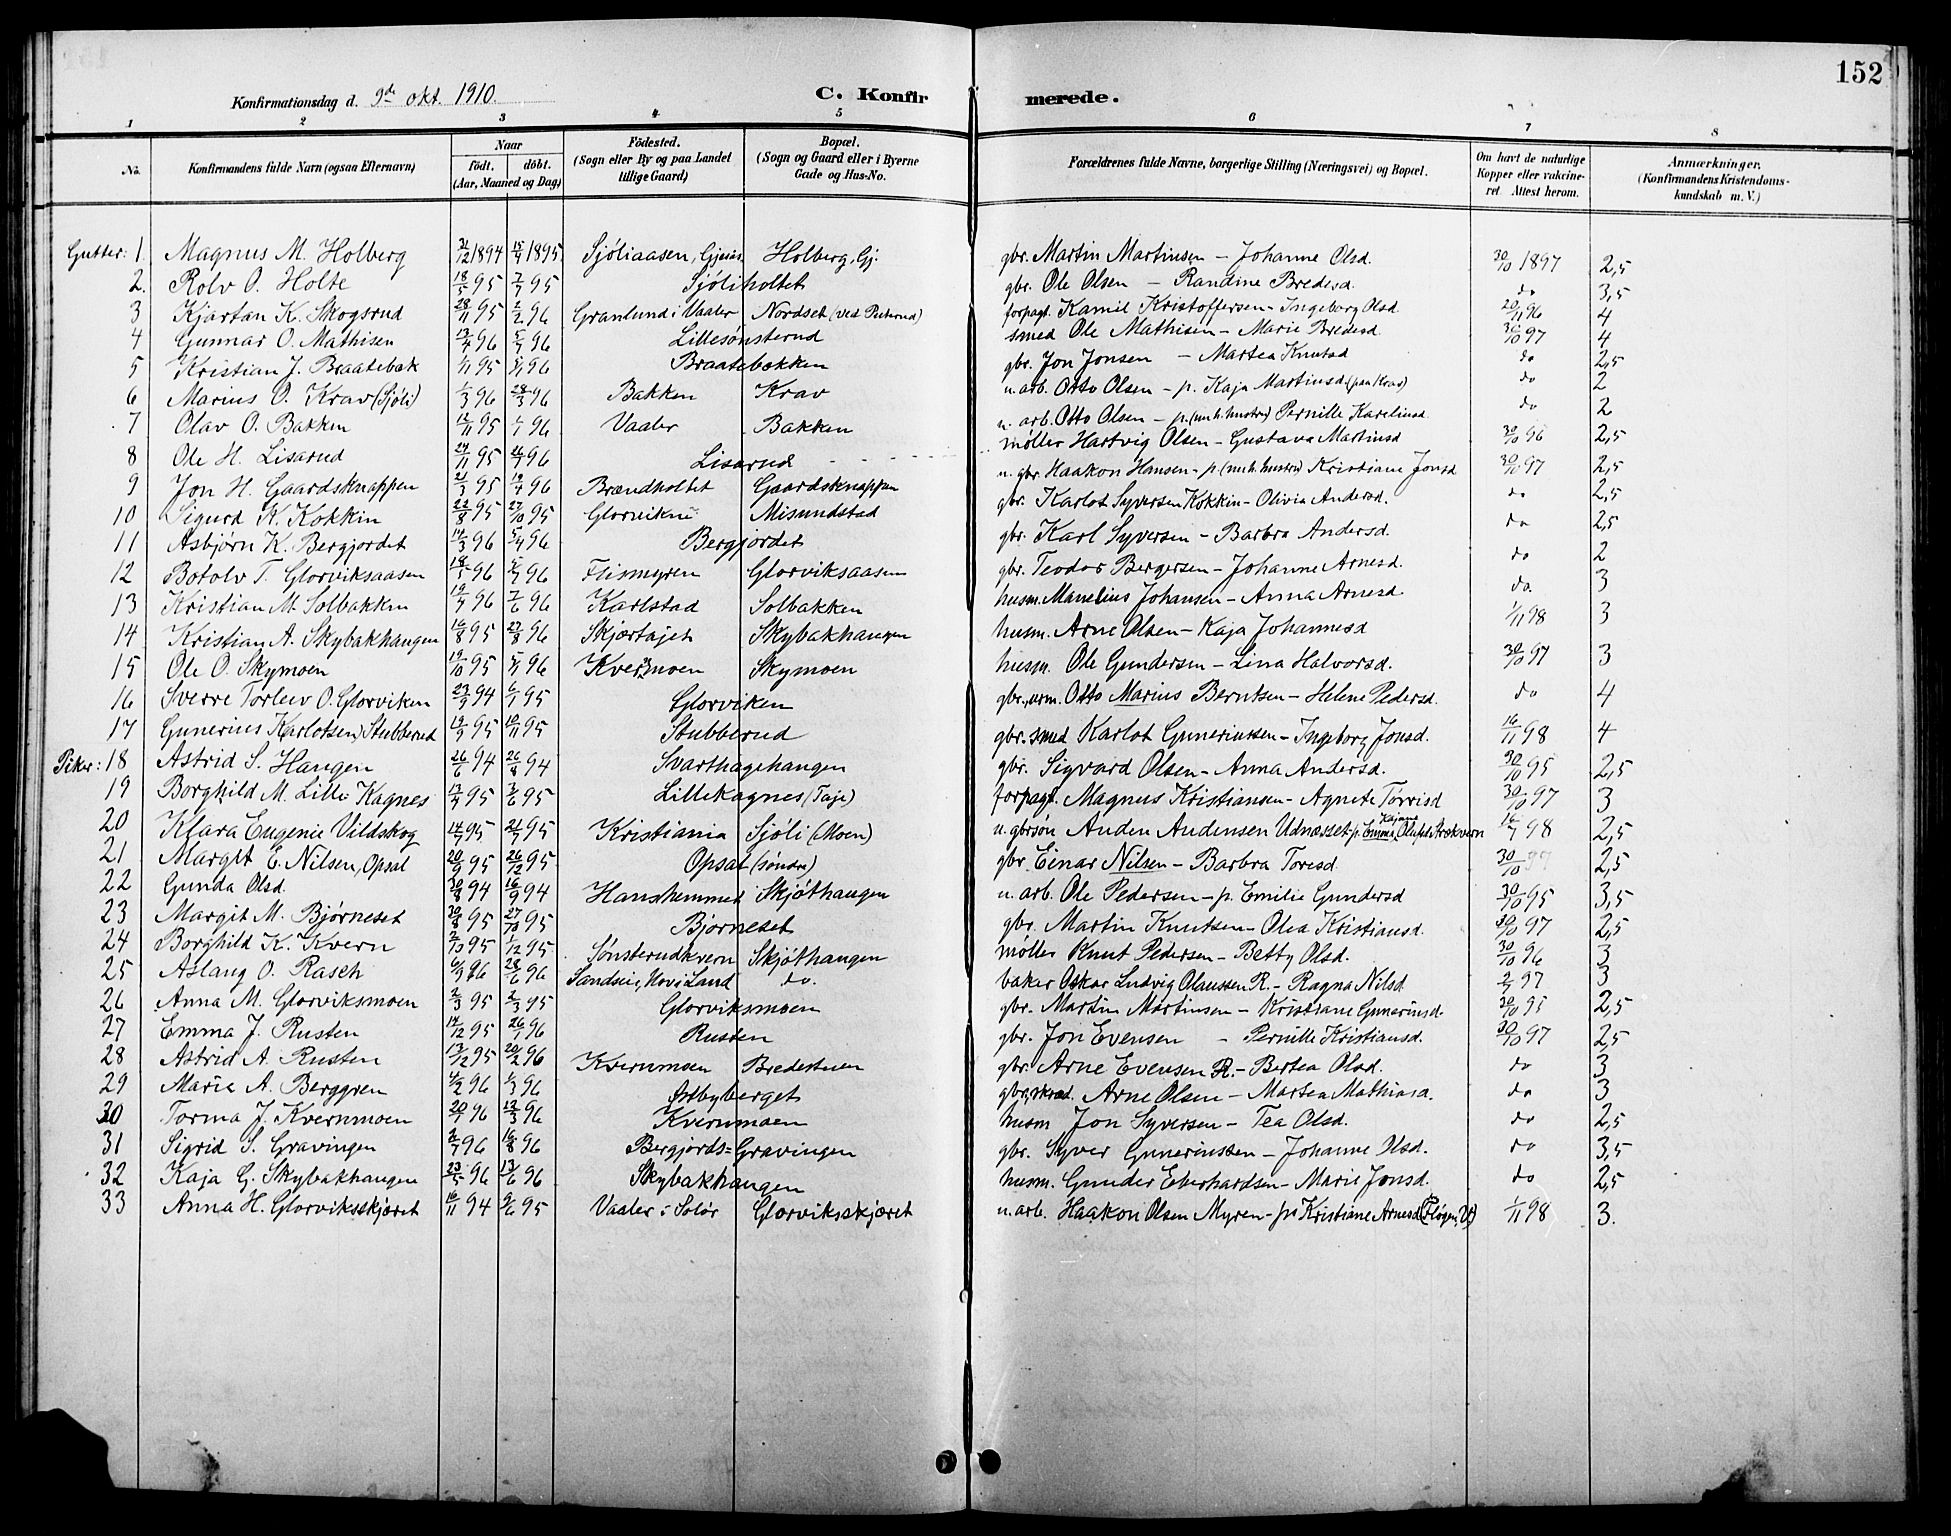 152
Konfirmationsdag d. 9de okt. 1910. C. Konfirmerede.
1 2 3 4 5 6 7 8
No. Konfirmandens fulde Navn (ogsaa Efternavn) Naar födt. döbt. (Aar, Maaned og Dag) Födested. (Sogn eller By og paa Landet tillige Gaard) Bopæl. (Sogn og Gaard eller i Byerne Gade og Hus-No. Forældrenes fulde Navne, borgerlige Stilling (Næringsvei) og Bopæl. Om havt de naturlige Kopper eller vakcineret. Attest herom. Anmærkninger. (Konfirmandens Kristendomskundskab m. V.)
Gutter: 1. Magnus M. Holberg 31/12 1894 15/4 1895 Sjöliaasen, Holberg, Gj. gbr. Martin Martinsen – Johanne Olsd. 30/10 1897 2,5
2. Rolv O. Holte 95 95 Sjöliholtet gbr. Ole Olsen – Randine Bredesd. do 3,5
3 Kjartan K. Skogsrud 28/11 95 2/2 96 Granlund i Vaaler Nordset (ved Peterud) forpagt. Kamil Kristoffersen – Ingeborg Olsd 20/11 96 4
4 Gunnar O. Mathisen 13/4 96 5/7 96 Lillesønsterud smed Ole Mathisen – Marie Bredesd 30/10 97 4
5 Kristian J. Braatebak 95 96 Braatebakken gbr. Jon Jonsen – Martea Knutsd do 2,5
6 Marius O. Krav (Sjöli) 1/3 96 28/3 96 Bakken Krav u. arb. Otto Olsen – p. Kaja Martinsd (paa Krav) do 2
7 Olav O. Bakken 12/11 95 1/1 96 Vaaler Bakken u. arb. Otto Olsen – p. (nu h. hustru) Pernille Karelinsd do 2
8 Ole H. Lisarud 24/11 95 26/7 96 Lisarud møller Hartvig Olsen – Gustava Martinsd 30/10 96 2,5
9 Jon H. Gaardsknappen 21/3 95 19/4 96 Brændholtet Gaardsknappen u. gbr. Haakon Hansen – p (nu h. hustru) Kristiane Jonsd 30/10 97 2,5
10 Sigurd K. Kokkin 22/8 95 27/10 95 Glorvikne Misundstad gbr. Karlot Syversen Kokkin – Olivia Andersd. do 2,5
11 Asbjørn K. Bergjordet 14/3 96 5/4 96 Bergjordet gbr. Karl Syversen – Barbra Andersd. do 2,5
12 Botolv T. Glorviksaasen 96 96 Flismyren Glorviksaasen gbr. Teodor Bergersen – Johanne Arnesd. do 2
13 Kristian M. Solbakken 19/4 96 7/6 96 Karlstad Solbakken husm. Manelius Johansen – Anna Arnesd do. 3
14 Kristian A. Skybakhangen 16/8 95 23/8 96 Skjærtajet Skybakhangen husm. Arne Olsen – Kaja Johannesd 1/11 98 3
15 Ole O. Skymoen 19/10 95 5/1 96 Kvernmoen Skymoen husm. Ole Gundersen – Lina Halvorsd. 30/10 97 3
16 Sverre Torleiv O. Glorviken 23/9 94 6/1 95 Glorviken gbr., urm. Otto Marius Berntsen – Helene Pedersd. do 4
17 Gunerius Karlotsen Stubberud 19/9 95 10/11 95 Stubberud gbr. smed Karlot Guneriussen – Ingeborg Jonsd. 16/11 98 4
Piker: 18 Astrid S. Hangen 26/6 94 26/8 94 Svarthagehangen gbr. Sigvard Olsen – Anna Andersd. 30/10 95 2,5
19 Borghild M. Lille Kagnes 13/4 95 3/6 95 Lillekagnes (Taje) forpagt. Magnus Kristiansen – Agnete Torrisd 30/10 97 3
20 Klara Eugenie Vildskog 14/7 95 21/7 95 Kristiania Sjöli (Moen) u. gbrsøn Anden Andensen Udnæsset p. Emma Kajane 16/7 98 2,5
21 Margit E. Nilsen, Opsal 20/9 95 26/12 95 Opsal (søndre) gbr. Einar Nilsen – Barbra Toresd. 30/10 97 2,5
22 Gunda Olsd. 30/8 94 16/9 94 Hanshemmet Skjöthangen u. arb. Ole Pedersen – p. Emilie Gundersd 30/10 95 3,5
23 Margit M. Bjørneset 30/8 95 27/10 95 Bjørneset gbr. Martin Knutsen – Olea Kristiansd. 30/10 97 2,5
24 Borghild K. Kvern 2/10 95 1/12 95 Sønsterudkvern Skjöthangen møller Knut Pedersen – Betty Olsd. 30/10 96 3
25 Aslaug O. Rasch 96 28/6 96 do. baker Oskar Ludvig Olaussen R. – Ragna Nilsd 2/7 97 3
26 Anna M. Glorviksmoen 2/3 95 2/3 95 Glorviksmoen gbr. Martin Martinsen – Kristiane Guneriusd 30/10 95 2,5
27 Emma J. Rusten 14/12 95 26/1 96 Rusten gbr. Jon Evensen – Pernille Kristiansd. 30/10 97 2,5
28 Astrid A. Rusten 13/12 95 20/2 96 Kvernmoen Bredestuen gbr. Arne Evensen R. – Bertea Olsd. do 3
29 Marie A. Berggren 4/2 96 1/3 96 Østbyberget gbr, skræd. Arne Olsen – Martea Mathiasd. do 3
30 Torma J. Kvernmoen 20/1 96 12/3 96 Kvernmoen husm Jon Syversen – Tea Olsd. do 2,5
31 Sigrid S. Gravingen 2/7 96 16/8 96 Bergjords=Gravingen gbr. Syver Guneriussen – Johanne Olsd. do 3,5
32 Kaja G. Skybakhangen 23/5 96 13/6 96 Skybakhangen husm. Gunder Eberhardsen – Marie Jonsd. do 2,5
33 Anna H. Glorviksskjæret 16/11 94 9/6 95 Vaaler i Solör Glorviksskjæret u. arb. Haakon Olsen Myren – p. Kristiane Arnesd 1/11 98 3.